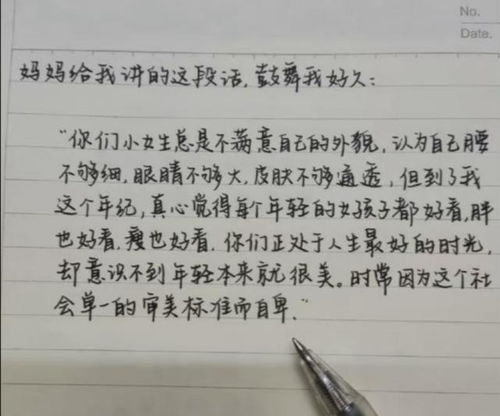 No.
Date.
妈妈给我讲的这段话,鼓舞我好久:
"你们小女生总是不满意自己的外貌,认为自己腰
不够细,眼睛不够大,皮肤不够通透,但到了我
这个年纪,真心觉得每个年轻的女孩子都好看,胖
也好看,瘦也好看.你们正处于人生最好的时光,
却意识不到年轻本来就很美。时常因为这个社
会单一的审美标准而自卑."